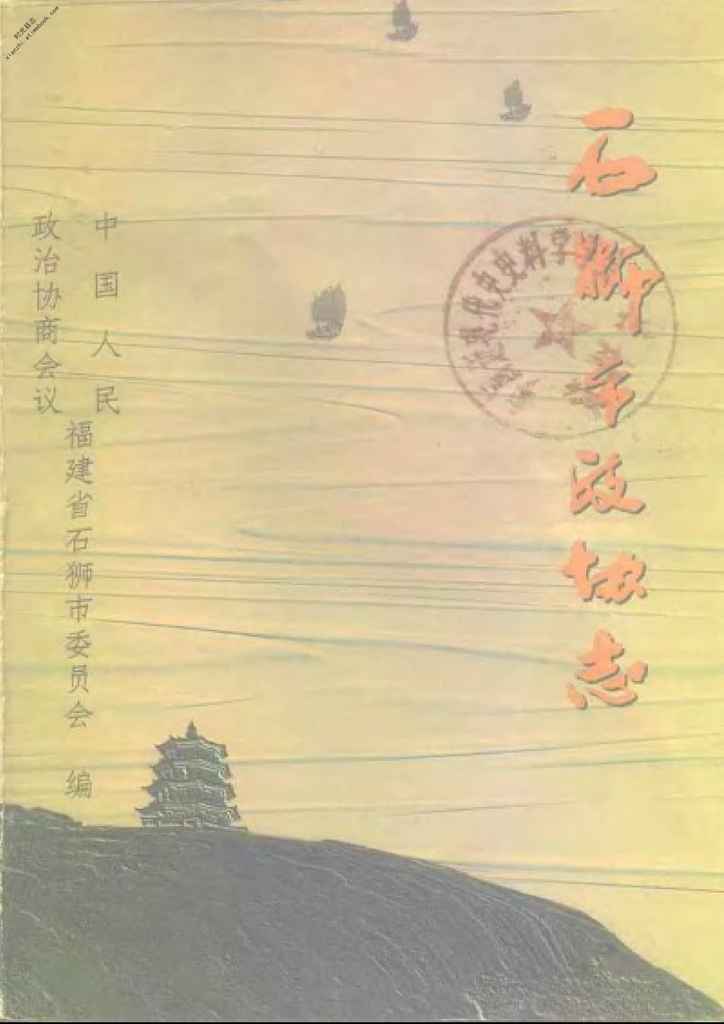 石狮市政协志
中国人民
政治协商会议
福建省石狮市委员会 编
现代史史料学